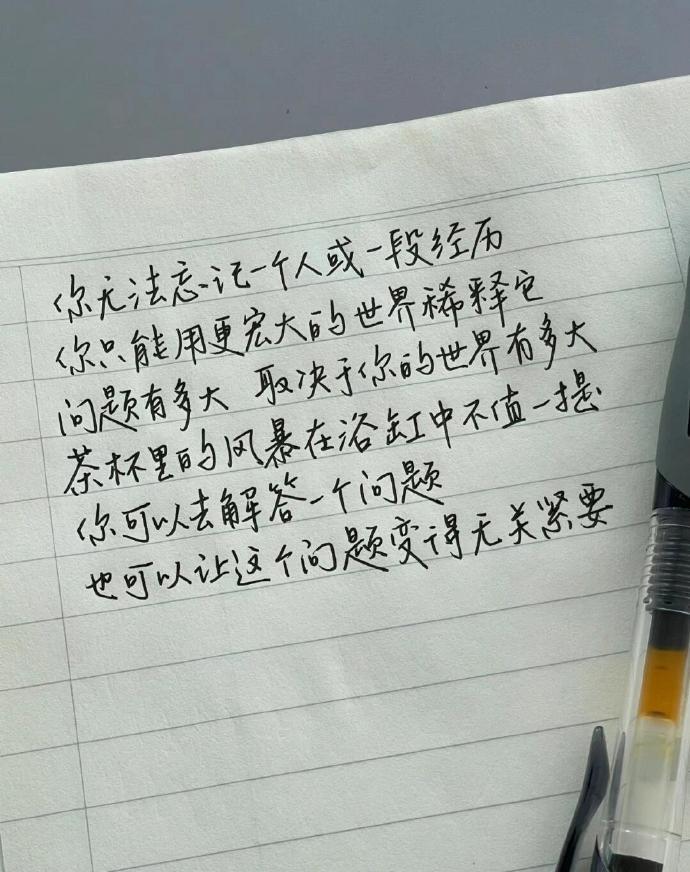 你无法忘记一个人或一段经历
你只能用更宏大的世界稀释它
问题有多大 取决于你的世界有多大
茶杯里的风暴在浴缸中不值一提
你可以去解答一个问题
也可以让这个问题变得无关紧要